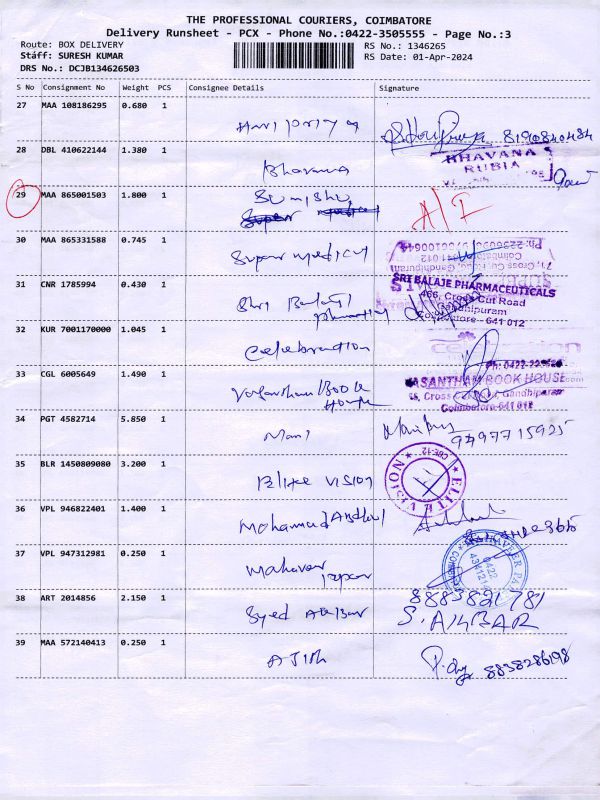 THE PROFESSIONAL COURIERS, COIMBATORE
Delivery Runsheet - PCX - Phone No.:0422-3505555 - Page No.:3
Route: BOX DELIVERY
RS No.: 1346265
Staff: SURESH KUMAR
RS Date: 01-Apr-2024
DRS No.: DCJB134626503
S No Consignment No Weight PCS Consignee Details Signature
27 MAA 108186295 0.680 1
Haripriya 8190840484
28 DBL 410622144 1.380 1
BHAVANA
RUBIA
Bhavana
29 MAA 865001503 1.800 1
A/I
30 MAA 865331588 0.745 1
Super medical
Ph: 2236093, 9786100644
71, Cross Cut Road, Gandhipuram
Coimbatore - 641 012
31 CNR 1785994 0.430 1
SRI BALAJE PHARMACEUTICALS
466, Cross Cut Road
Gandhipuram
Coimbatore - 641 012
Shri Balaji
32 KUR 7001170000 1.045 1
Celebration
33 CGL 6005649 1.490 1
Ph: 0422-22
VASANTHAM BOOK HOUSE
Cross Cut Road, Gandhipuram
Coimbatore-641 012
Vasantham Book
House
34 PGT 4582714 5.850 1
Mani 9497715925
35 BLR 1450809080 3.200 1
Elite VISION
ELITE VISION
CBE-12
36 VPL 946822401 1.400 1
Mohammad Abdul
37 VPL 947312981 0.250 1
Mahaveer
paper
0422
38 ART 2014856 2.150 1
Syed Akbar
8883821781
S. AKBAR
39 MAA 572140413 0.250 1
AJITH 8838286198